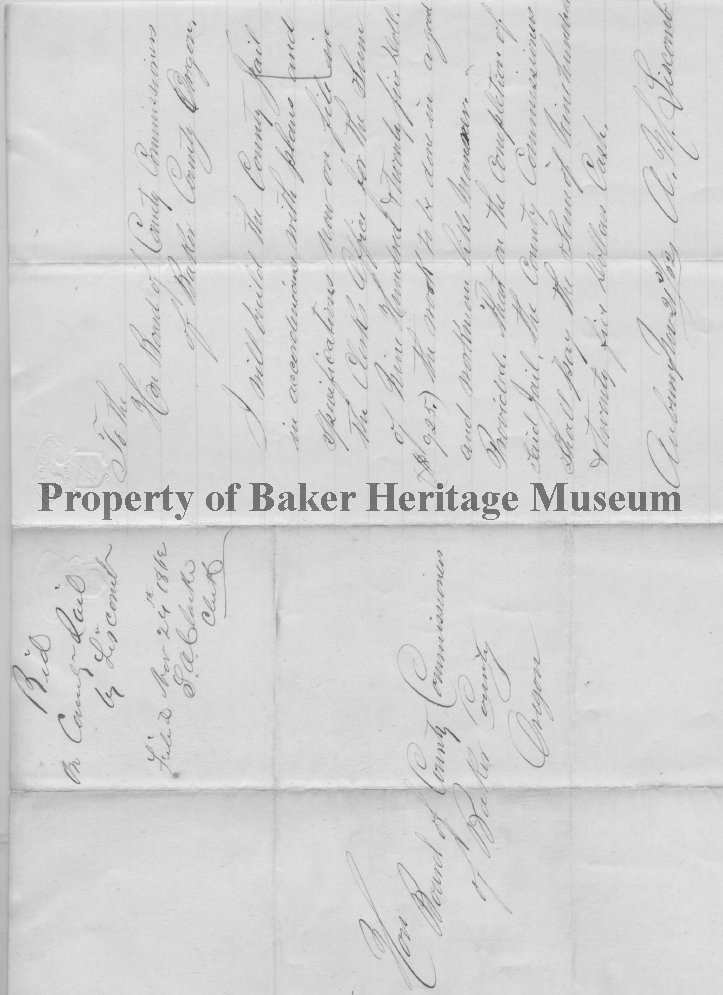 To the
Hon Board of County Commissioners
of Baker County Oregon.
I will build the County Jail
in accordance with plans and
Specifications now on file in
the Clerks Office for the Sum
of Nine Hundred & twenty five Doll.
($925.) the work to be done in a good
and workman like manner.
Provided, that on the Completion of
said Jail, the County Commissioners
Shall pay the Sum of Nine hundred
& twenty five Dollars Cash.
Auburn Nov 21st/62 A. W. Liscomb
Property of Baker Heritage Museum
Bid
on County Jail
by Liscomb
Filed Nov 24th 1862
S. A. Clarke
Clerk
Hon
Board of County Commissioners
of Baker County
Oregon